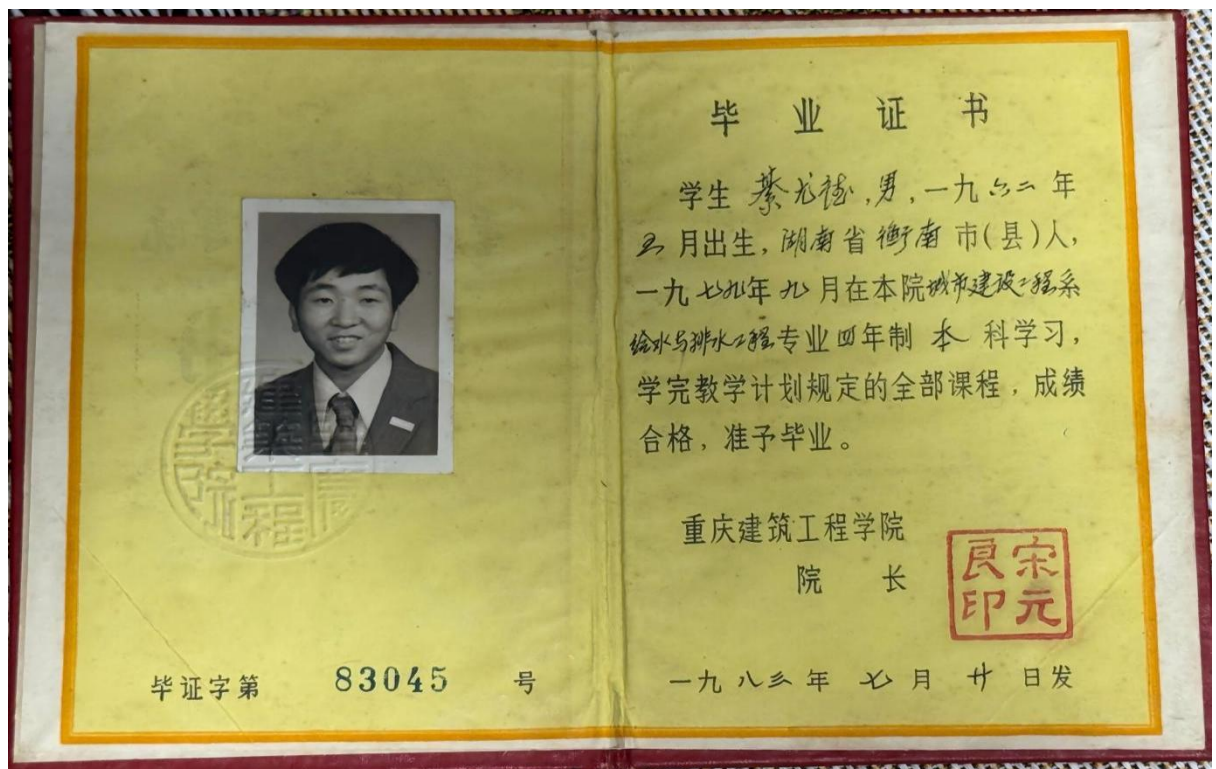 毕证字第 83045 号
毕业证书
学生 ,男,一九六二年
五月出生,湖南省衡南市(县)人,
一九七九年九月在本院城市建设工程系
给水与排水工程专业四年制 本 科学习,
学完教学计划规定的全部课程,成绩
合格,准予毕业。
重庆建筑工程学院
院 长
宋元良印
一九八三年 七月 廿 日发